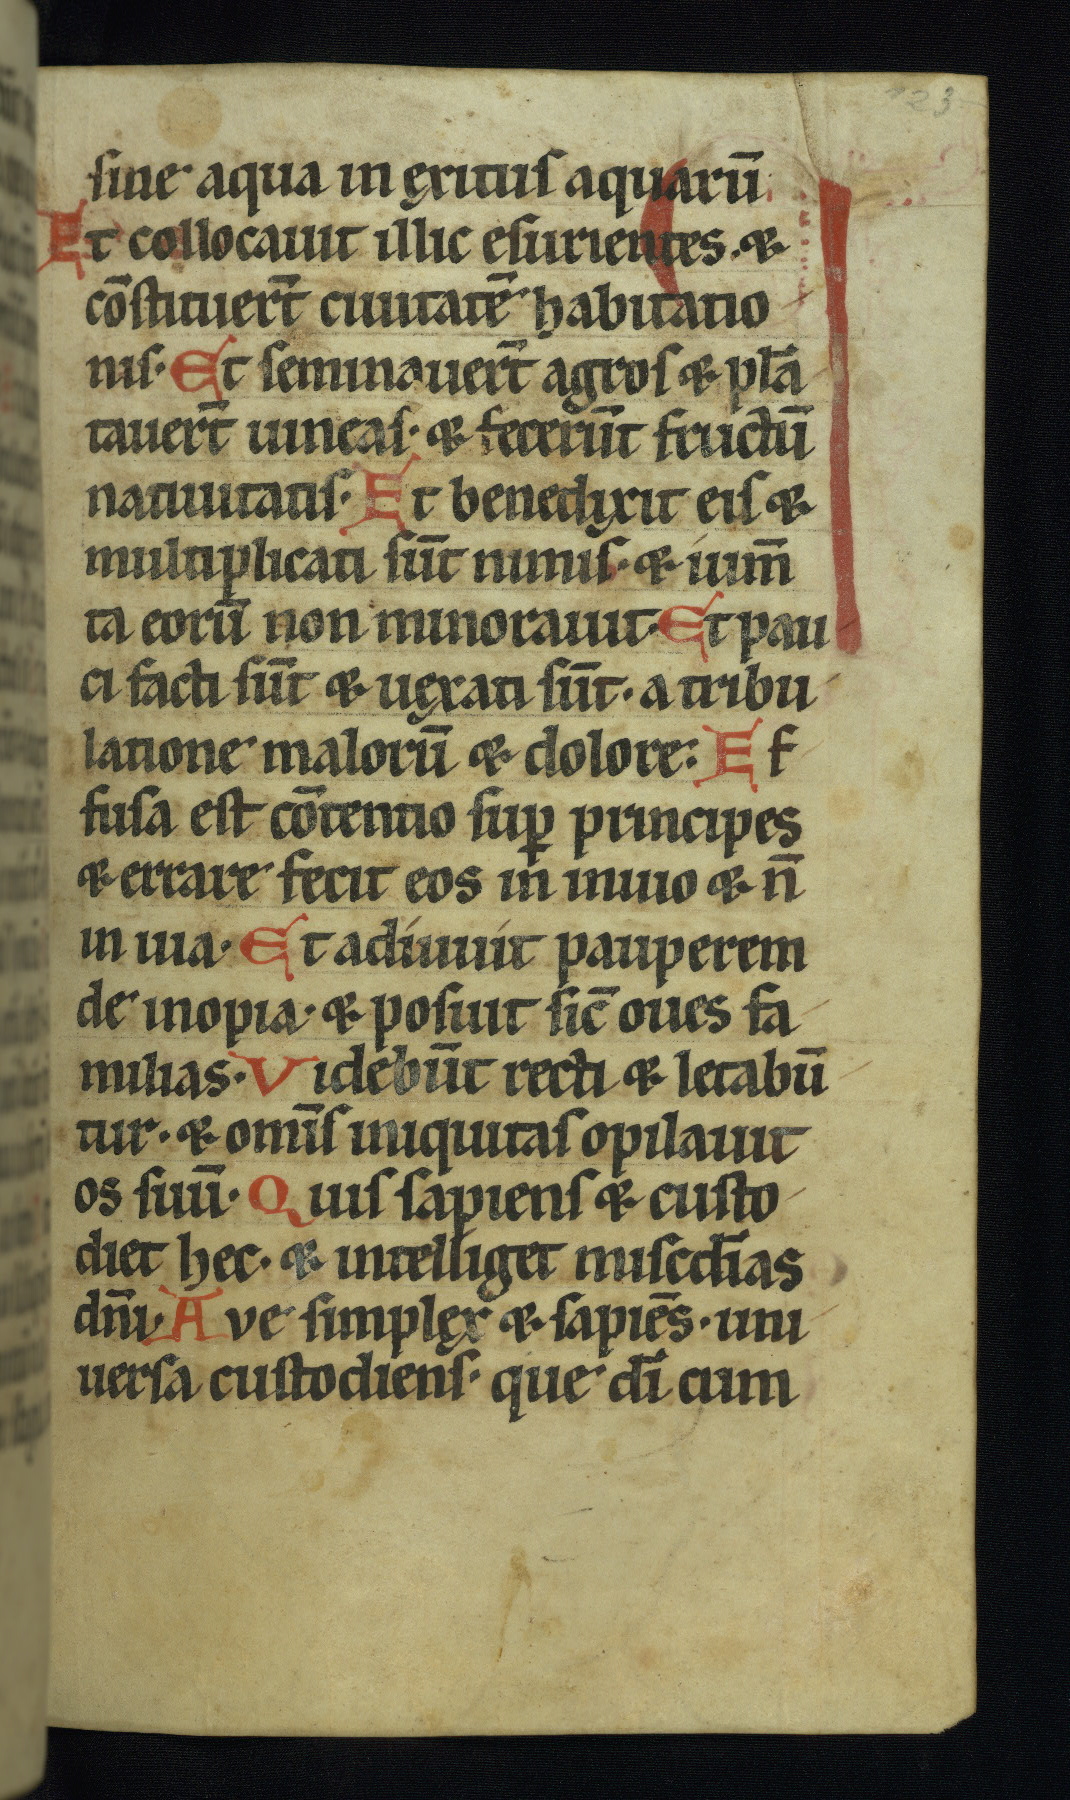 23
sine aqua in exitus aquarū
Et collocauit illic esurientes. &
cōstituert̄ ciuitatē habitatio
nis. Et seminauert̄ agros & plā
tauert̄ uineas. & fecerūt fructū
natiuitatis. Et benedixit eis &
multiplicati sūt nimis. & ium̄
ta eorū non minorauit. Et pau
ci facti sūt & uexati sūt. a tribu
latione malorū & dolore: Ef
fusa est cōtentio suꝑ principes
& errare fecit eos in inuio & n̄
in uia. Et adiuuit pauperem
de inopia. & posuit sic̄ oues fa
milias. Videbūt recti & letabū
tur. & om̄is iniquitas opilauit
os suū. Quis sapiens & custo
diet hec. & intelliget miscd̄ias
dn̄i. Ave simplex & sapiēs. uni
uersa custodiens. que dī cum